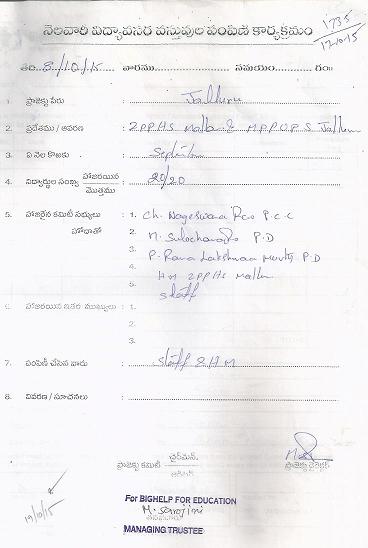 1735
17.10.15
నెలవారీ విద్యావసర వస్తువుల పంపిణీ కార్యక్రమం
తేది 8/10/15 వారము సమయం గం॥
1. ప్రాజెక్టు పేరు : Jalluru
2. ప్రదేశము / ఆవరణ : ZPPHS Mallam & MPPUPS Jalluru
3. ఏ నెల కొఱకు : September
4. విద్యార్థుల సంఖ్య హాజరయిన : 20/20
మొత్తము
5. హాజరైన కమిటీ సభ్యులు : 1. Ch. Nageswara Rao P.C.C
హోదాతో 2. N. Sulochana P.D
3. P. Rama Lakshmana Murthy P.D
4. HM ZPPHS Mallam
5. Staff
6. హాజరయిన ఇతర ముఖ్యులు : 1.
2.
3.
7. పంపిణీ చేసిన వారు : Staff & HM
8. వివరణ / సూచనలు :
ప్రాజెక్టు కమిటీ ఛైర్మెన్ ప్రాజెక్టు డైరెక్టర్
19/10/15
For BIGHELP FOR EDUCATION
M. Sarojini
MANAGING TRUSTEE